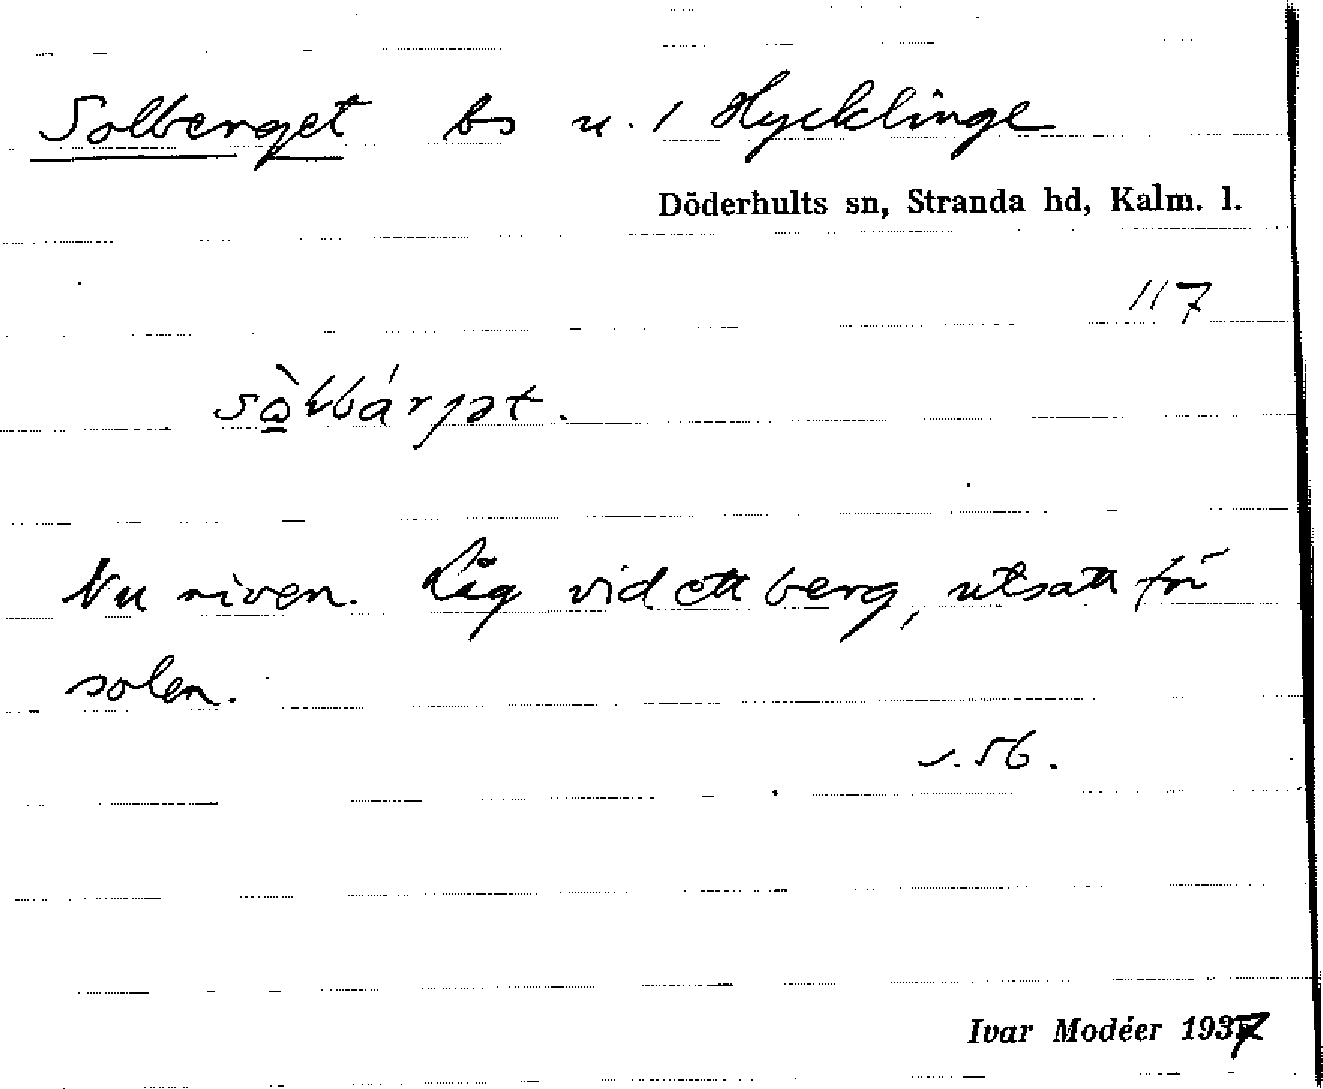 Solberget bs u. 1 Hycklinge
Döderhults sn, Stranda hd, Kalm. l.
117
Nu riven. Låg vid ett berg, utsatt för
solen.
s. 56.
Ivar Modéer 1937